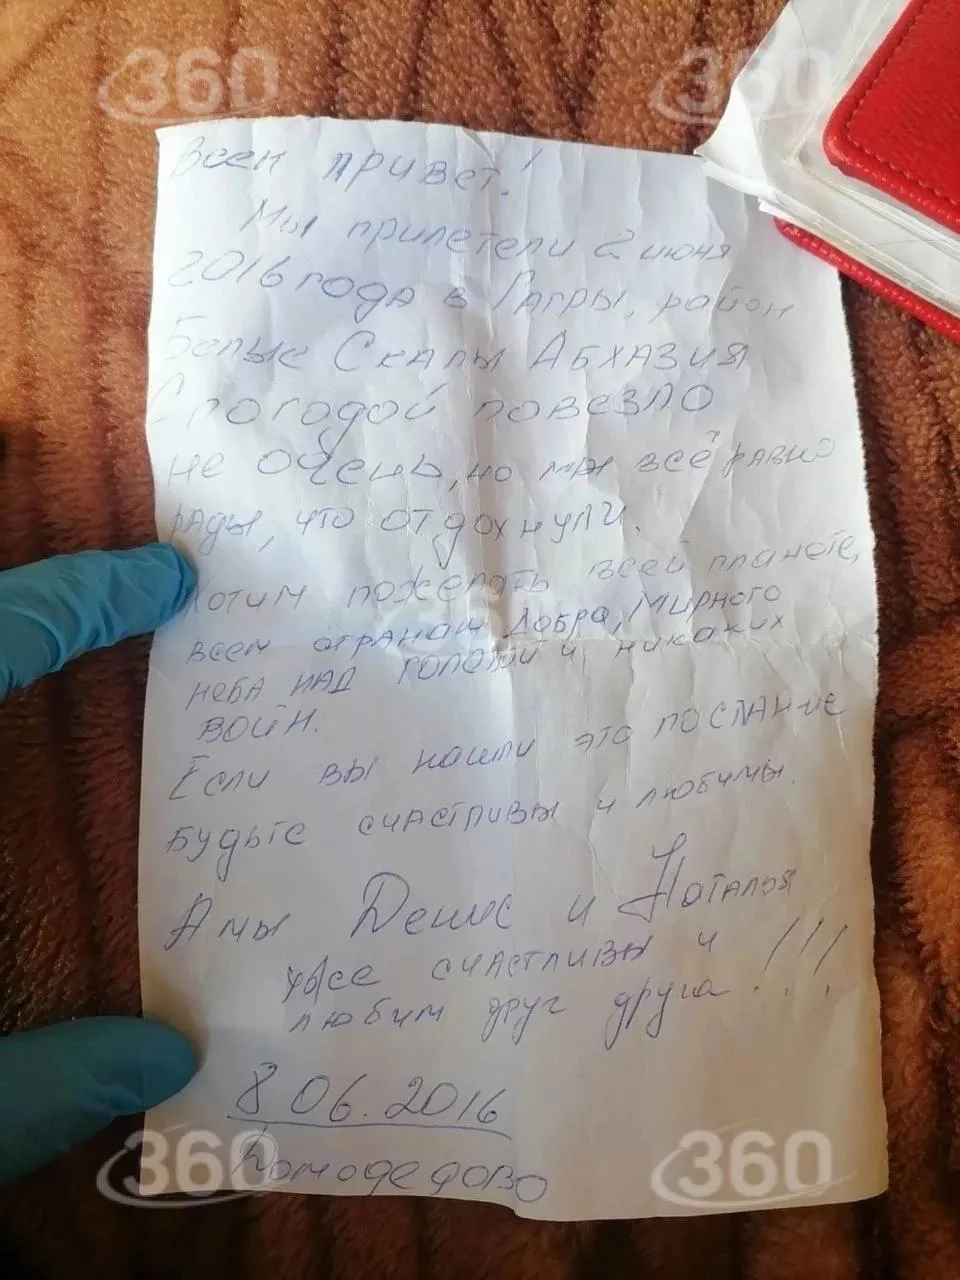 360
360
Всем привет!
Мы прилетели 2 июня
2016 года в Гагры, район
Белые Скалы Абхазия
С погодой повезло
не очень, но мы всё равно
рады, что отдохнули.
Хотим пожелать всей планете,
всем странам Добра, Мирного
неба над головой и никаких
войн.
Если вы нашли это послание
будьте счастливы и любимы.
А мы Денис и Наталья
уже счастливы и
любим друг друга!!!
8 06.2016
Домодедово
360
360
360